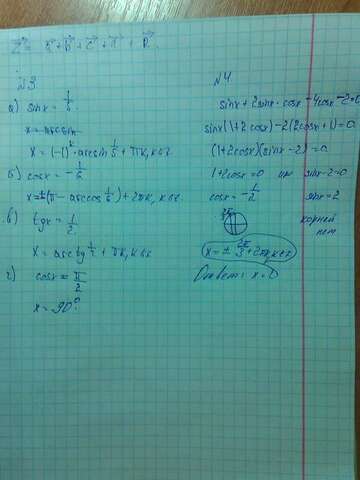 №3
а) sinx = 1/6
x = arcsin
x = (-1)ᵏ · arcsin 1/6 + πk, k∈z
б) cosx = -1/6
x = ±(π - arccos 1/6) + 2πk, k∈z
в) tgx = 1/2
x = arctg 1/2 + πk, k∈z
г) cosx = π/2
x = 90?
№4
sinx + 2sinx · cosx - 4cosx - 2 = 0
sinx(1+2cosx) - 2(2cosx+1) = 0
(1+2cosx)(sinx-2) = 0
1+2cosx = 0 или sinx-2=0
cosx = -1/2 sinx = 2
корней
нет
x = ± 2π/3 + 2πk, k∈z
Ответ: x =